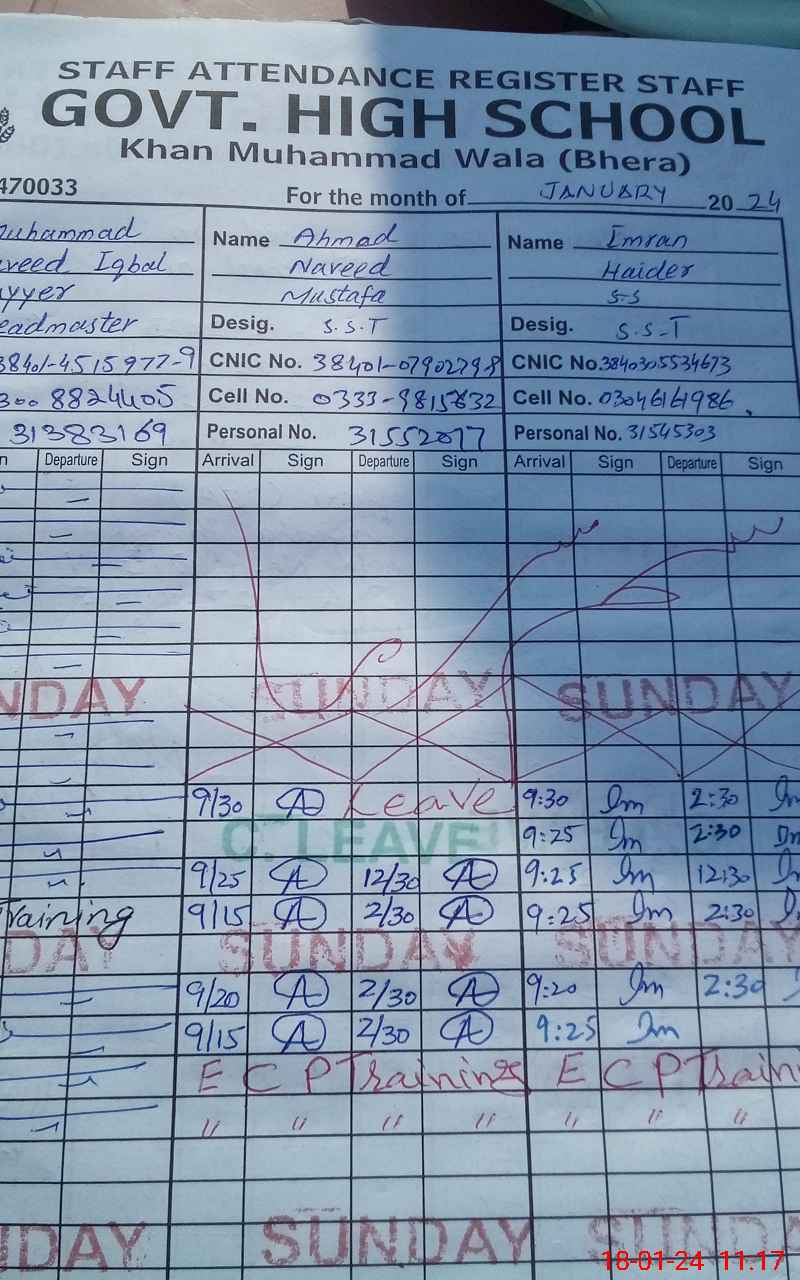 STAFF ATTENDANCE REGISTER STAFF
GOVT. HIGH SCHOOL
Khan Muhammad Wala (Bhera)
470033 For the month of JANUARY 2024
uhammad Name Ahmad Name Imran
veed Iqbal Naveed Haider
yyer Mustafa S-S
eadmaster Desig. S.S.T Desig. S.S.T
38401-4515977-9 CNIC No. 38401-07902798 CNIC No. 3840305534673
300 8824405 Cell No. 0333-9815632 Cell No. 03046161986
31383169 Personal No. 31552077 Personal No. 31545303
n Departure Sign Arrival Sign Departure Sign Arrival Sign Departure Sign
NDAY SUNDAY SUNDAY
9/30 A Leave 9:30 Im 2:30 Im
C. LEAVE 9:25 Im 2:30 Im
9/25 A 12/30 A 9:25 Im 12:30 Im
Training 9/15 A 2/30 A 9:25 Im 2:30
DAY SUNDAY SUNDAY
9/20 A 2/30 A 9:20 Im 2:30
9/15 A 2/30 A 9:25 Im
E C P Training E C P Train
" " " " " " "
NDAY SUNDAY SUNDA
18-01-24 11.17